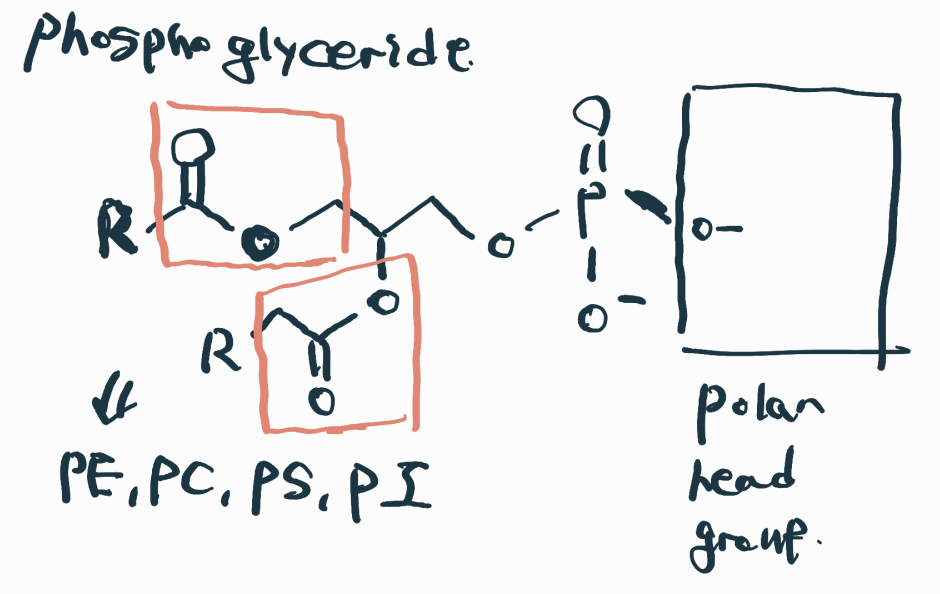 phospho glyceride.
O
O
P
R
O
O
O-
O
O-
R
O
PE, PC, PS, PI
polan
head
group.